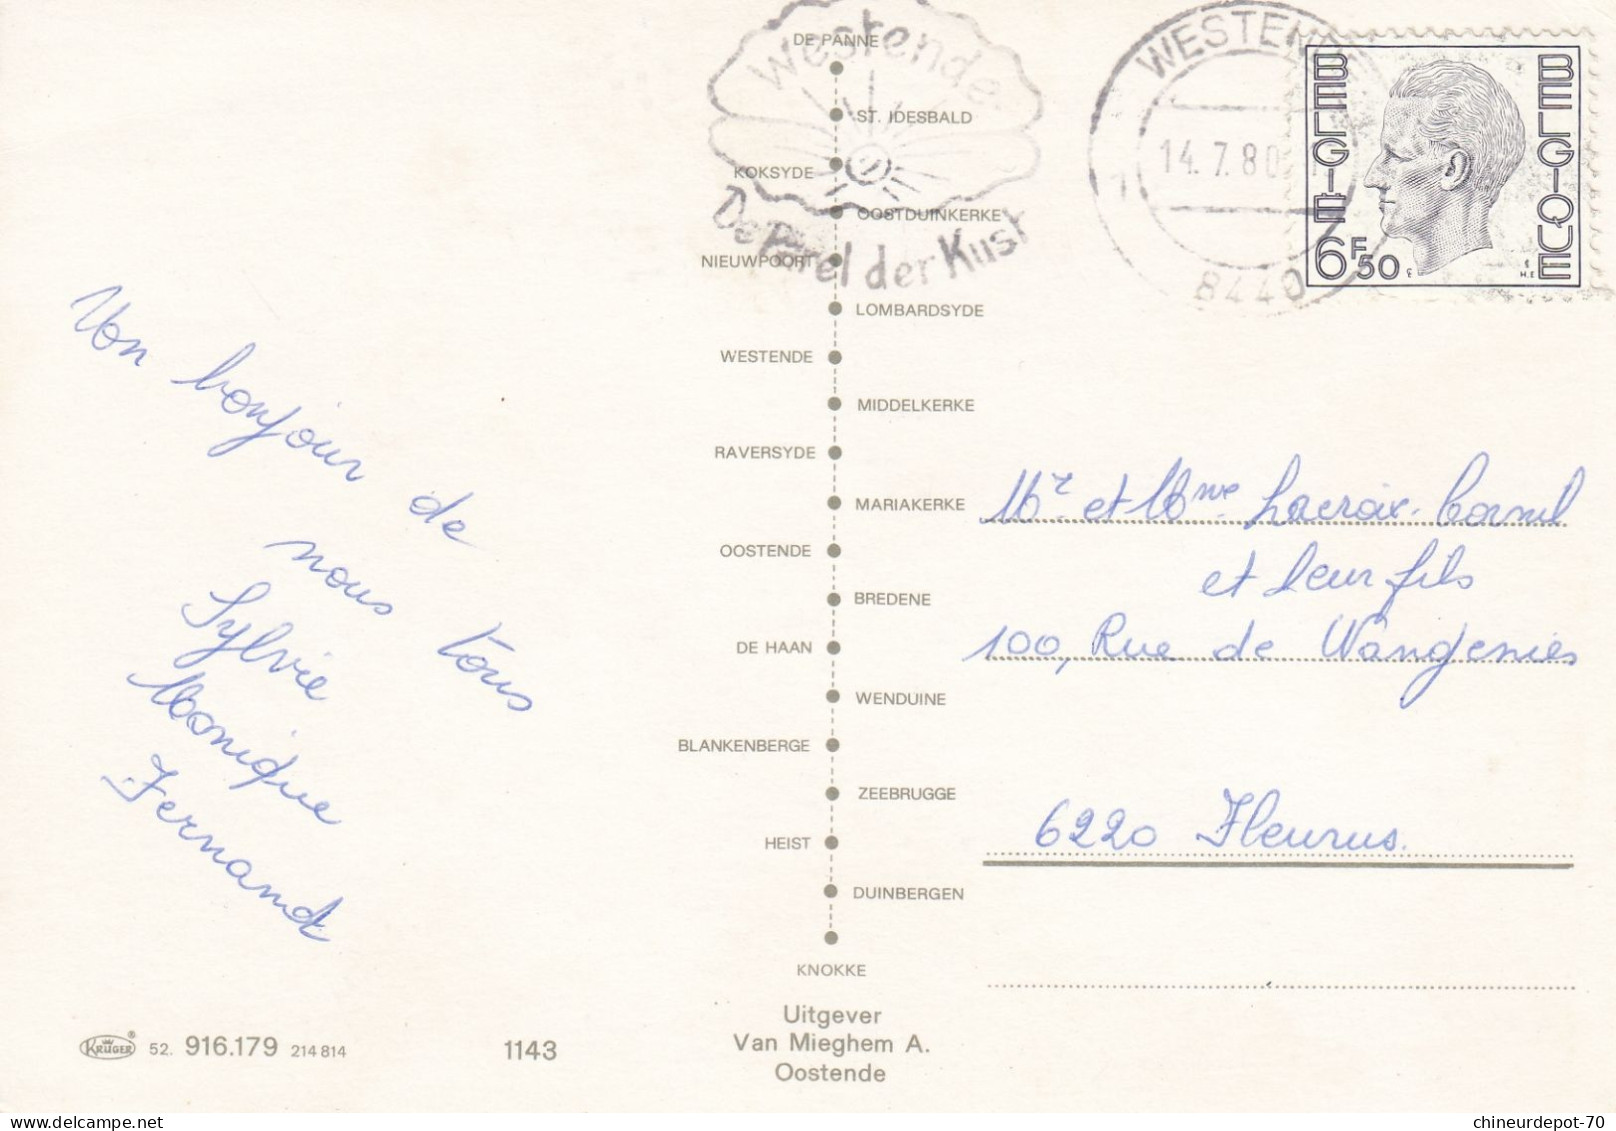 Westende
De Parel der Kust
WESTEND
14.7.80
8440
BELGIË
BELGIQUE
6F50
H.E
DE PANNE
ST. IDESBALD
KOKSYDE
OOSTDUINKERKE
NIEUWPOORT
LOMBARDSYDE
WESTENDE
MIDDELKERKE
RAVERSYDE
MARIAKERKE
OOSTENDE
BREDENE
DE HAAN
WENDUINE
BLANKENBERGE
ZEEBRUGGE
HEIST
DUINBERGEN
KNOKKE
Un bonjour de
nous tous
Sylvie
Monique
Fernand
Mr et Mme Lacroix-Cornil
et leur fils
100, Rue de Wangenies
6220 Fleurus.
Uitgever
Van Mieghem A.
Oostende
KRÜGER ® 52. 916.179 214 814
1143
chineurdepot-70